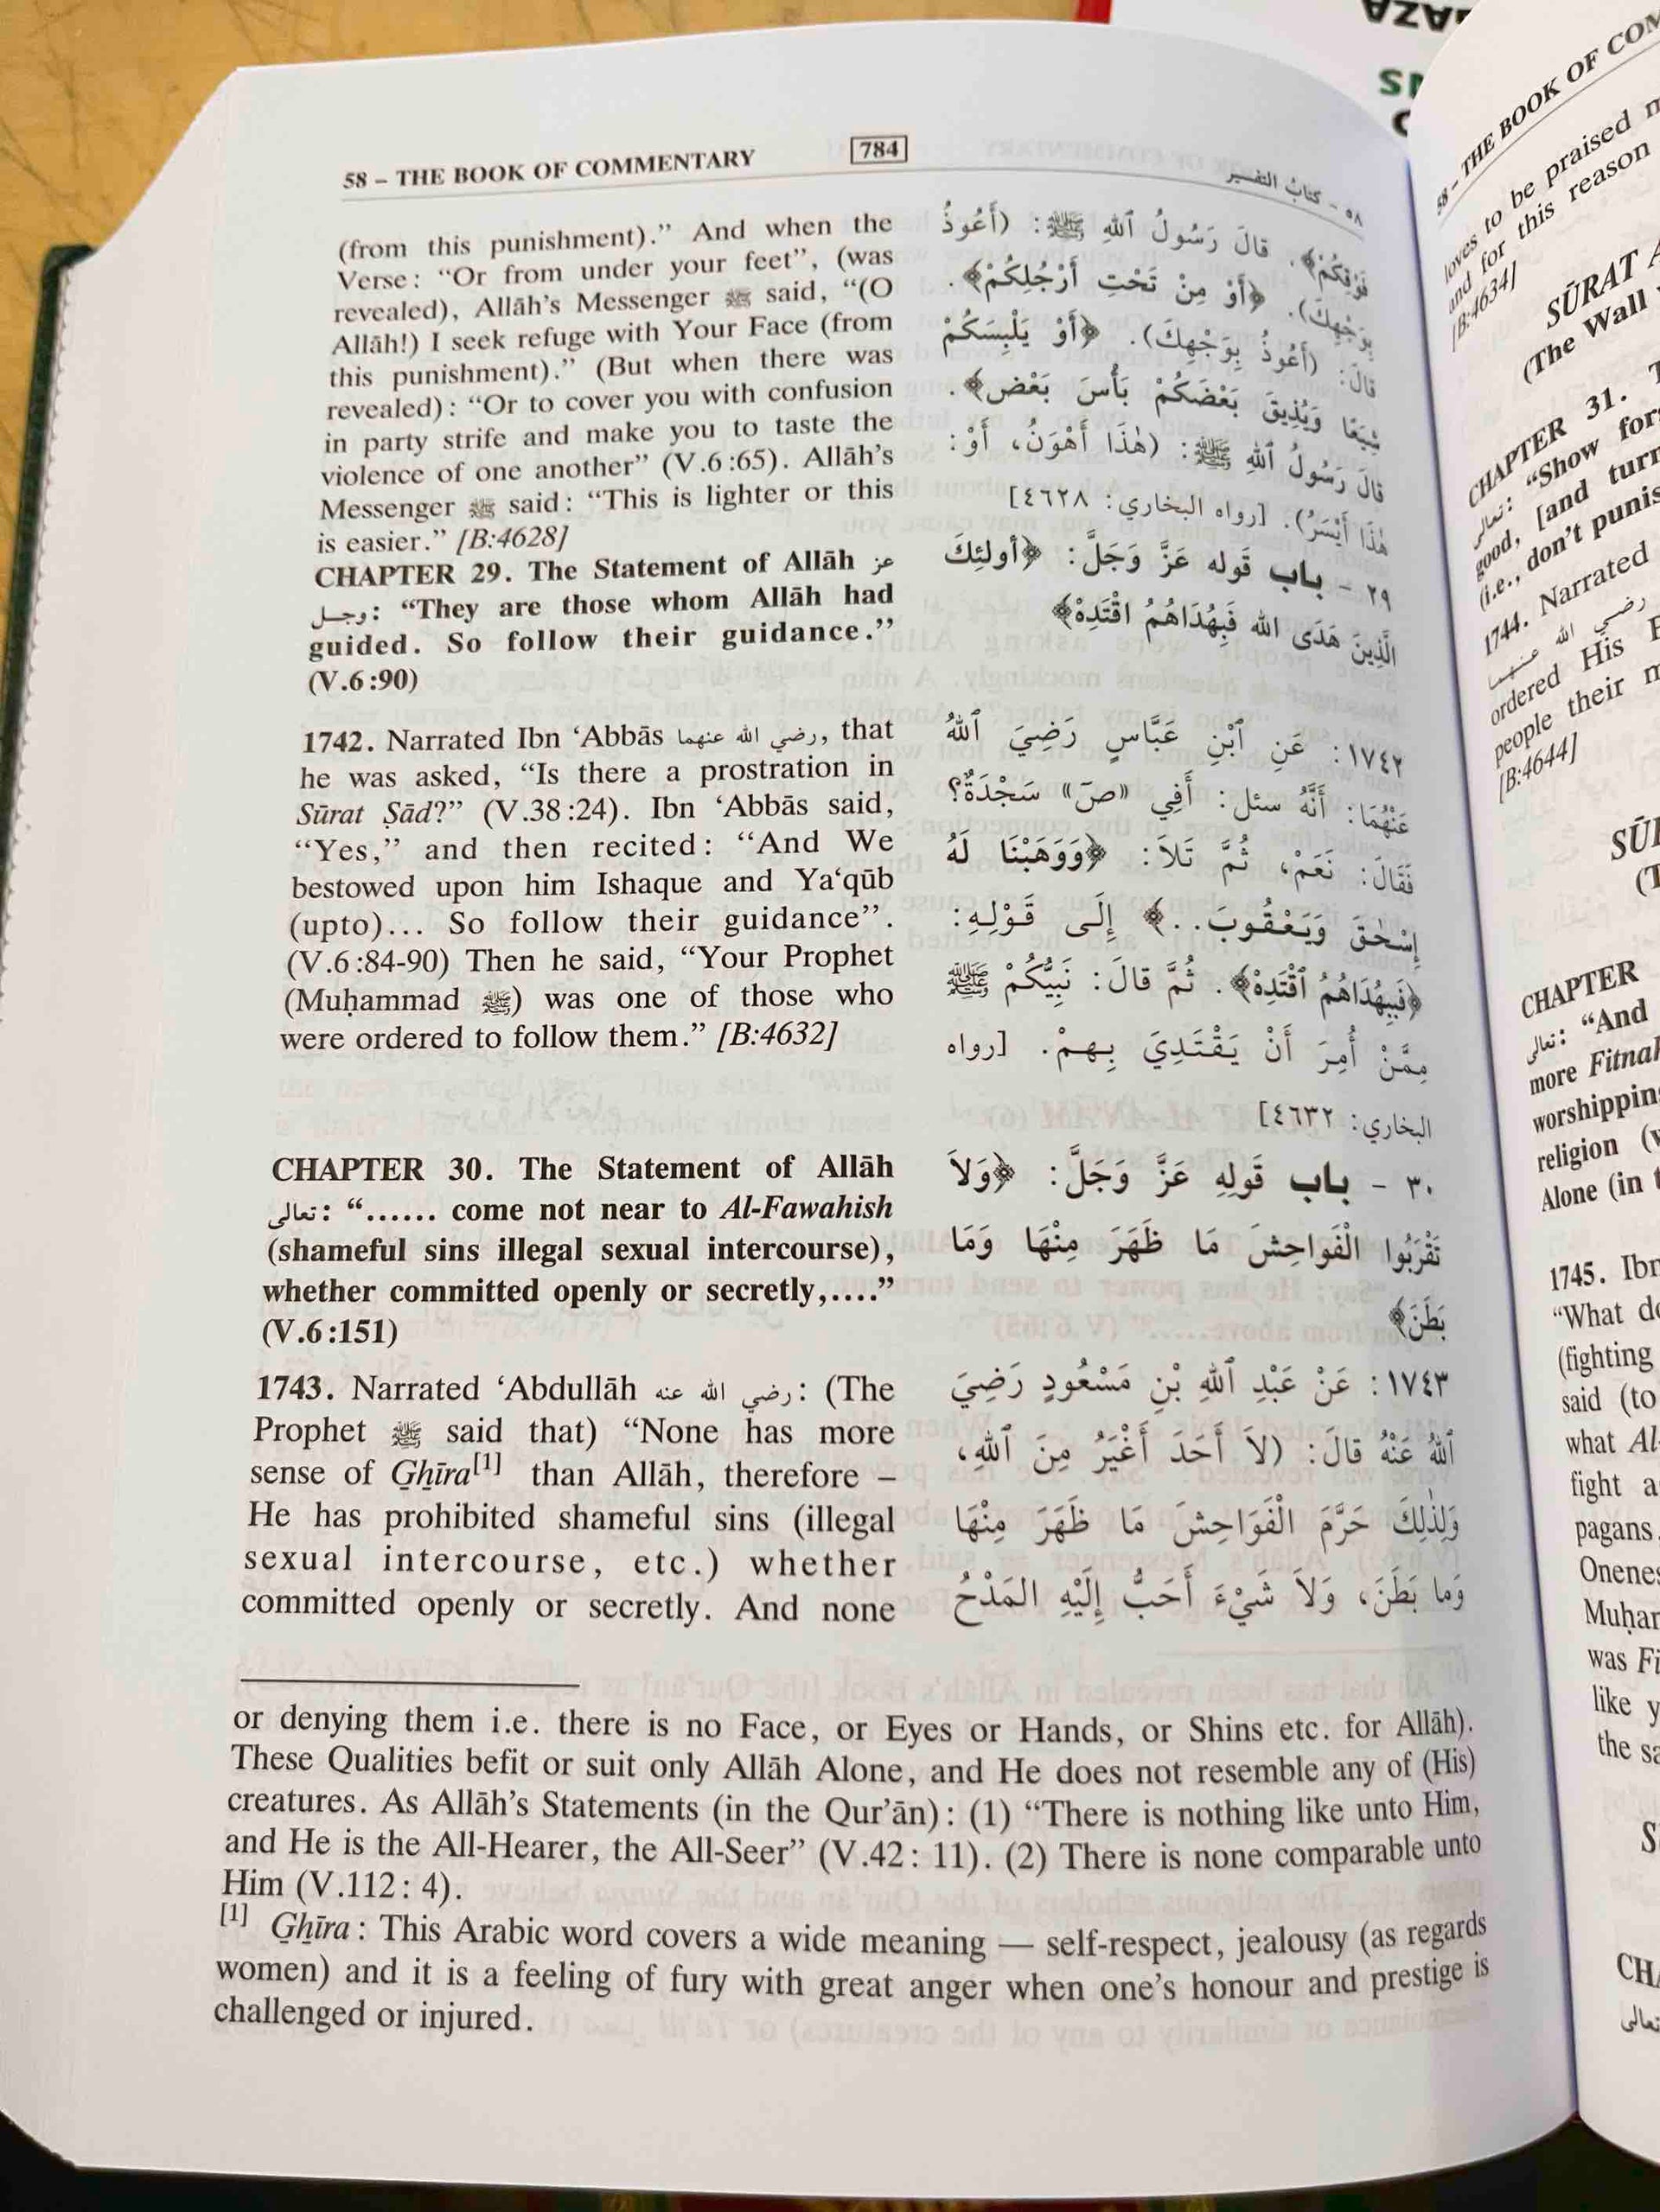 58 – THE BOOK OF COMMENTARY
784
٥٨ - كتابُ التفسير
(from this punishment).” And when the
Verse: “Or from under your feet”, (was
revealed), Allāh’s Messenger ﷺ said, “(O
Allāh!) I seek refuge with Your Face (from
this punishment).” (But when there was
revealed): “Or to cover you with confusion
in party strife and make you to taste the
violence of one another” (V.6:65). Allāh’s
Messenger ﷺ said: “This is lighter or this
is easier.” [B:4628]
CHAPTER 29. The Statement of Allāh عز
وجـل: “They are those whom Allāh had
guided. So follow their guidance.”
(V.6:90)
1742. Narrated Ibn ‘Abbās رضي الله عنهما, that
he was asked, “Is there a prostration in
Sūrat Ṣād?” (V.38:24). Ibn ‘Abbās said,
“Yes,” and then recited: “And We
bestowed upon him Ishaque and Ya‘qūb
(upto)... So follow their guidance”.
(V.6:84-90) Then he said, “Your Prophet
(Muḥammad ﷺ) was one of those who
were ordered to follow them.” [B:4632]
CHAPTER 30. The Statement of Allāh
تعالى: “...... come not near to Al-Fawahish
(shameful sins illegal sexual intercourse),
whether committed openly or secretly,....”
(V.6:151)
1743. Narrated ‘Abdullāh رضي الله عنه: (The
Prophet ﷺ said that) “None has more
sense of Ghīra[1] than Allāh, therefore –
He has prohibited shameful sins (illegal
sexual intercourse, etc.) whether
committed openly or secretly. And none
فَوْقِكُمْ﴾. قالَ رَسُولُ ٱللهِ ﷺ: (أَعُوذُ
بِوَجْهِكَ). ﴿أَوْ مِنْ تَحْتِ أَرْجُلِكُمْ﴾.
قالَ: (أَعُوذُ بِوَجْهِكَ). ﴿أَوْ يَلْبِسَكُمْ
شِيَعًا وَيُذِيقَ بَعْضَكُمْ بَأْسَ بَعْضٍ﴾.
قالَ رَسُولُ ٱللهِ ﷺ: (هٰذَا أَهْوَنُ، أَوْ:
هٰذَا أَيْسَرُ). [رواه البخاري: ٤٦٢٨]
٢٩ - باب قَوله عَزَّ وَجَلَّ: ﴿أولئِكَ
الَّذِينَ هَدَى الله فَبِهُدَاهُمُ اقْتَدِهْ﴾
١٧٤٢: عَنِ ٱبْنِ عَبَّاسٍ رَضِيَ ٱللهُ
عَنْهُمَا: أَنَّهُ سئل: أَفِي «صَ» سَجْدَةٌ؟
فَقَالَ: نَعَمْ، ثُمَّ تَلاَ: ﴿وَوَهَبْنَا لَهُ
إِسْحٰقَ وَيَعْقُوبَ..﴾ إِلَى قَوْلِهِ:
﴿فَبِهُدَاهُمُ ٱقْتَدِهْ﴾. ثُمَّ قالَ: نَبِيُّكُمْ ﷺ
مِمَّنْ أُمِرَ أَنْ يَقْتَدِيَ بِهِمْ. [رواه
البخاري: ٤٦٣٢]
٣٠ - باب قَولِهِ عَزَّ وَجَلَّ: ﴿وَلاَ
تَقْرَبُوا الْفَواحِشَ مَا ظَهَرَ مِنْهَا وَمَا
بَطَنَ﴾
١٧٤٣: عَنْ عَبْدِ ٱللهِ بْنِ مَسْعُودٍ رَضِيَ
ٱللهُ عَنْهُ قالَ: (لاَ أَحَدَ أَغْيَرُ مِنَ ٱللهِ،
وَلِذٰلِكَ حَرَّمَ الْفَوَاحِشَ مَا ظَهَرَ مِنْهَا
وَما بَطَنَ، وَلاَ شَيْءَ أَحَبُّ إِلَيْهِ المَدْحُ
or denying them i.e. there is no Face, or Eyes or Hands, or Shins etc. for Allāh).
These Qualities befit or suit only Allāh Alone, and He does not resemble any of (His)
creatures. As Allāh’s Statements (in the Qur’ān): (1) “There is nothing like unto Him,
and He is the All-Hearer, the All-Seer” (V.42: 11). (2) There is none comparable unto
Him (V.112: 4).
[1] Ghīra: This Arabic word covers a wide meaning — self-respect, jealousy (as regards
women) and it is a feeling of fury with great anger when one’s honour and prestige is
challenged or injured.
58 – THE BOOK OF
loves to be praised
and for this reason
[B:4634]
SŪRAT
(The Wall
CHAPTER 31.
تعالى: “Show
good, [and turn
(i.e., don’t
1744. Narrated
رضي الله عنهما
ordered His
people their
[B:4644]
CHAPTER
تعالى: “And
more
religion
Alone (in
1745.
“What
(fighting
said (to
what
fight
pagans
was
like